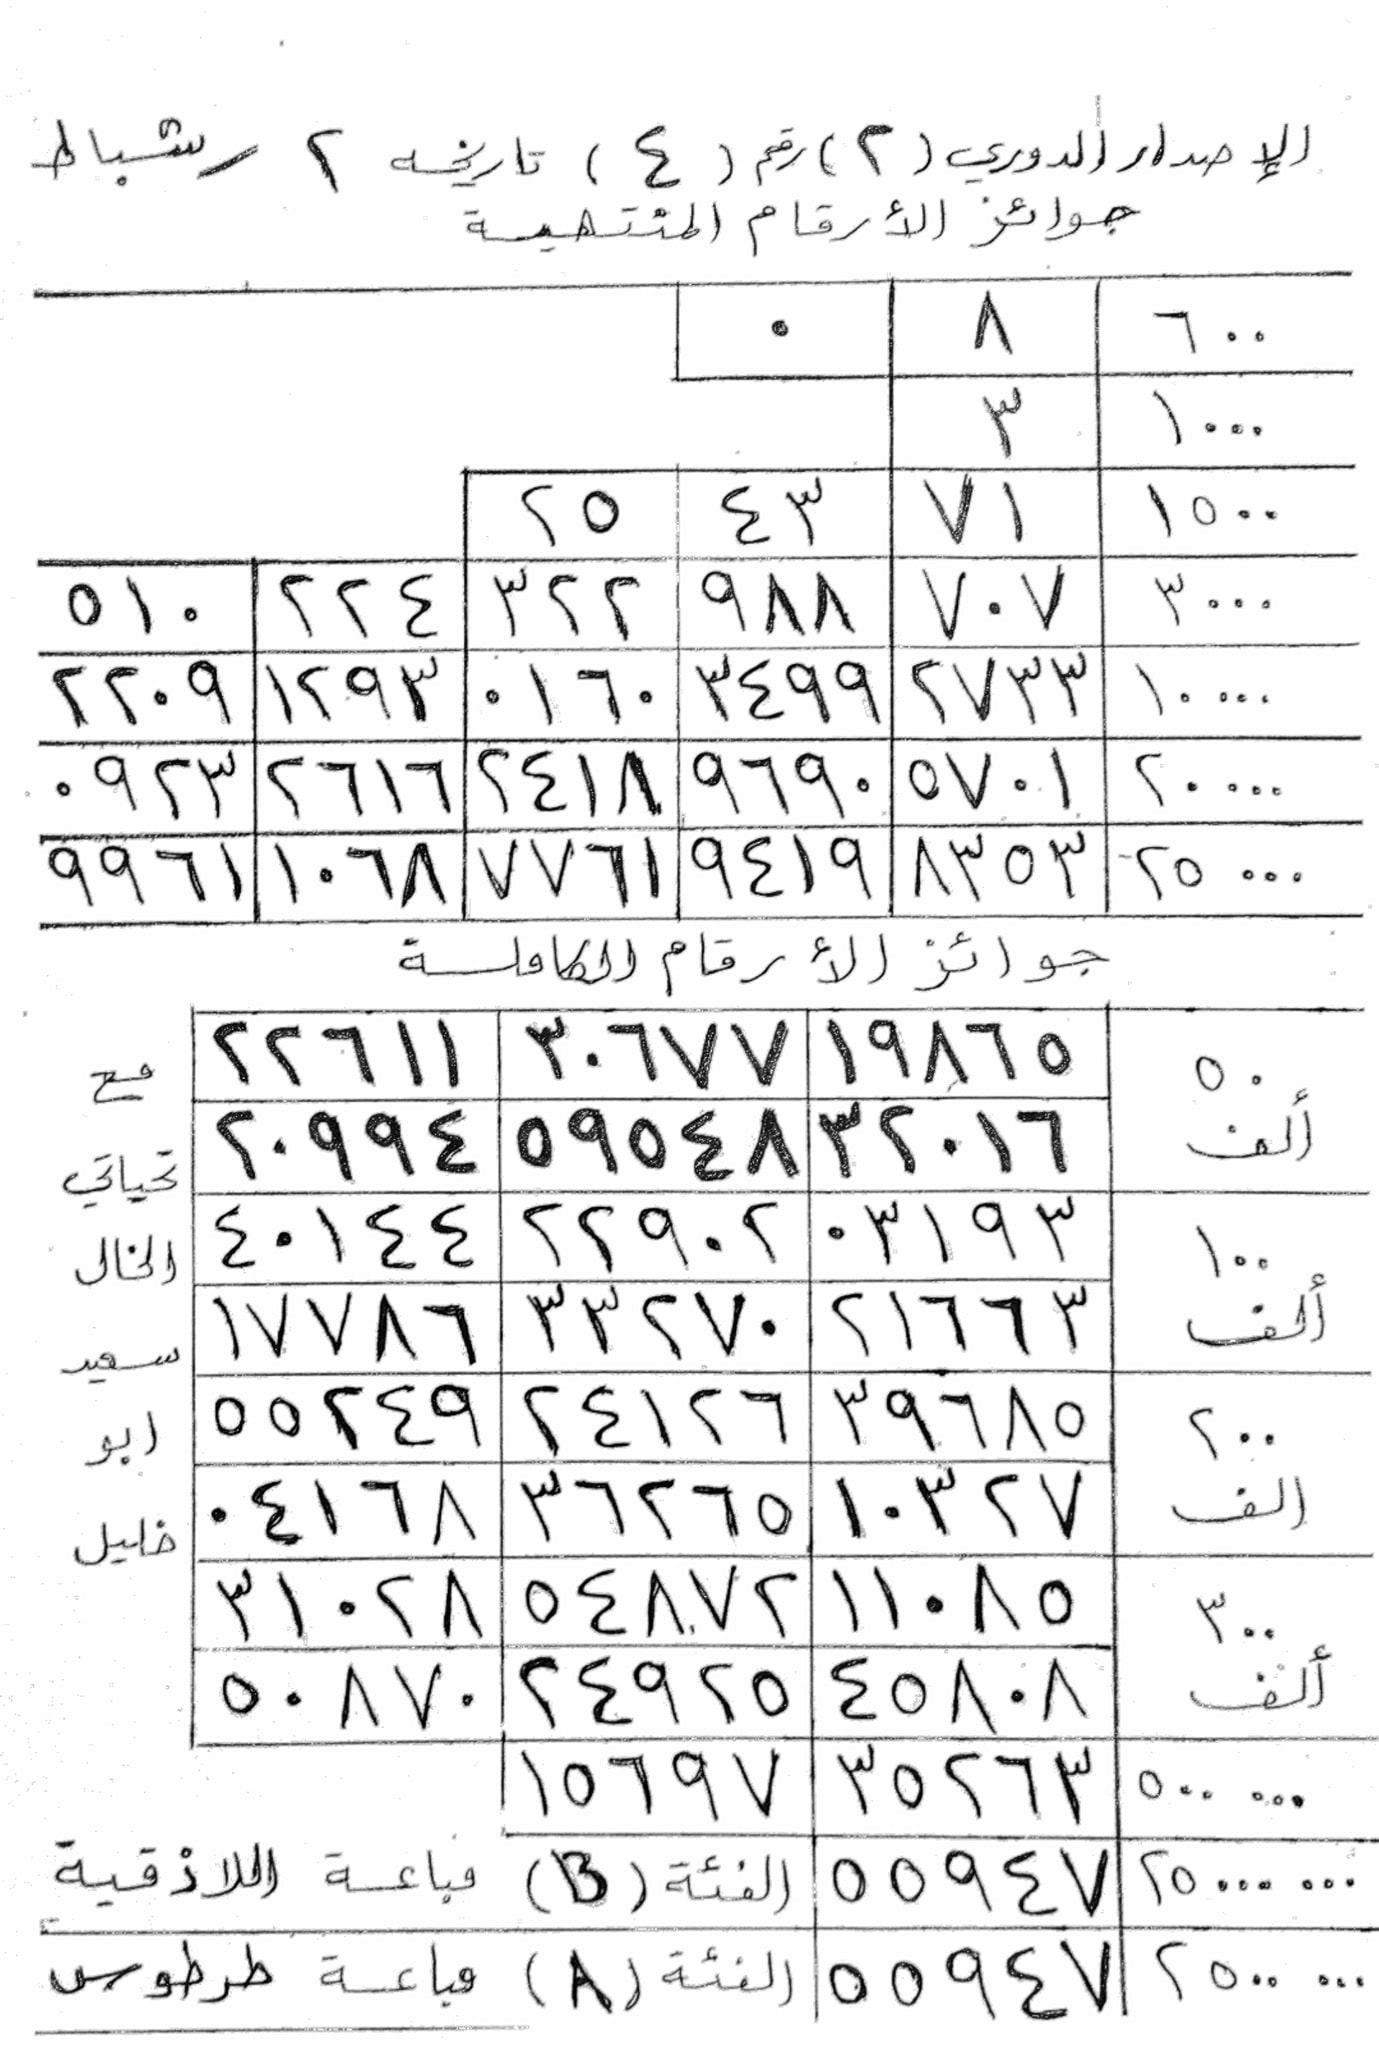 الإصدار الدوري (٢) رقم (٤) تاريخه ٢ / شباط
جوائز الأرقام المنتهية
٦٠٠ ٨ ٠
١٠٠٠ ٣
١٥٠٠ ٧١ ٤٣ ٢٥
٣٠٠٠ ٧٠٧ ٩٨٨ ٣٢٢ ٢٢٤ ٥١٠
١٠٠٠٠ ٢٧٣٣ ٣٤٩٩ ٠١٦٠ ١٢٩٣ ٢٢٠٩
٢٠٠٠٠ ٥٧٠١ ٩٦٩٠ ٢٤١٨ ٢٦١٦ ٠٩٢٣
٢٥٠٠٠ ٨٣٥٣ ٩٤١٩ ٧٧٦١ ١٠٦٨ ٩٩٦١
جوائز الأرقام الكاملة
٥٠ ألف
١٩٨٦٥ ٣٠٦٧٧ ٢٢٦١١
٣٢٠١٦ ٥٩٥٤٨ ٢٠٩٩٤
١٠٠ ألف
٠٣١٩٣ ٢٢٩٠٢ ٤٠١٤٤
٢١٦٦٣ ٣٣٢٧٠ ١٧٧٨٦
٢٠٠ الف
٣٩٦٨٥ ٢٤١٢٦ ٥٥٢٤٩
١٠٣٢٧ ٣٦٢٦٥ ٠٤١٦٨
٣٠٠ ألف
١١٠٨٥ ٥٤٨٧٢ ٣١٠٢٨
٤٥٨٠٨ ٢٤٩٢٥ ٥٠٨٧٠
٥٠٠ ٠٠٠ ٣٥٢٦٣ ١٥٦٩٧
٥٥٩٤٧ الفئة (B) مباعة اللاذقية
٥٥٩٤٧ الفئة (A) مباعة طرطوس
مع
تحياتي
الخال
سعيد
ابو
خليل